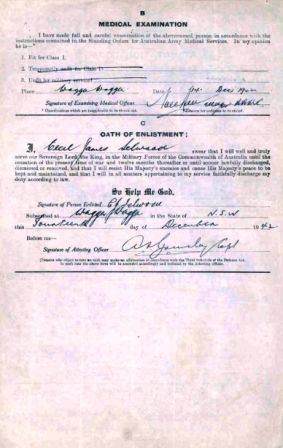 B
MEDICAL EXAMINATION
I have made full and careful examination of the abovenamed person in accordance with the
instructions contained in the Standing Orders for Australian Army Medical Services. In my opinion
he is—
1. Fit for Class I.
2. Temporarily unfit for Class I
3. Unfit for military service
Place Wagga Wagga Date 14 Dec 1942
Signature of Examining Medical Officer
* Classifications which are inapplicable to be struck out.
C
OATH OF ENLISTMENT;
I, Cecil James Selwood swear that I will well and truly
serve our Sovereign Lord, the King, in the Military Forces of the Commonwealth of Australia until the
cessation of the present time of war and twelve months thereafter or until sooner lawfully discharged,
dismissed or removed, and that I will resist His Majesty's enemies and cause His Majesty's peace to be
kept and maintained, and that I will in all matters appertaining to my service faithfully discharge my
duty according to law.
So Help Me God.
Signature of Person Enlisted CJ Selwood
Subscribed at Wagga Wagga in the State of N.S.W
this Fourteenth day of December 1942
Before me—
Signature of Attesting Officer Capt